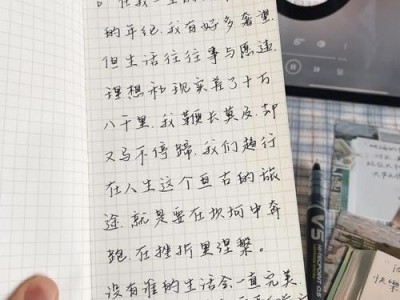 在我一生
的年纪,我有好多奢望
但生活往往事与愿违
理想和现实差了十万
八千里,我鞭长莫及,却
又马不停蹄.我们趋行
在人生这个亘古的旅
途,就是要在坎坷中奔
跑,在挫折里涅槃。
没有谁的生活会一直完美,
V5